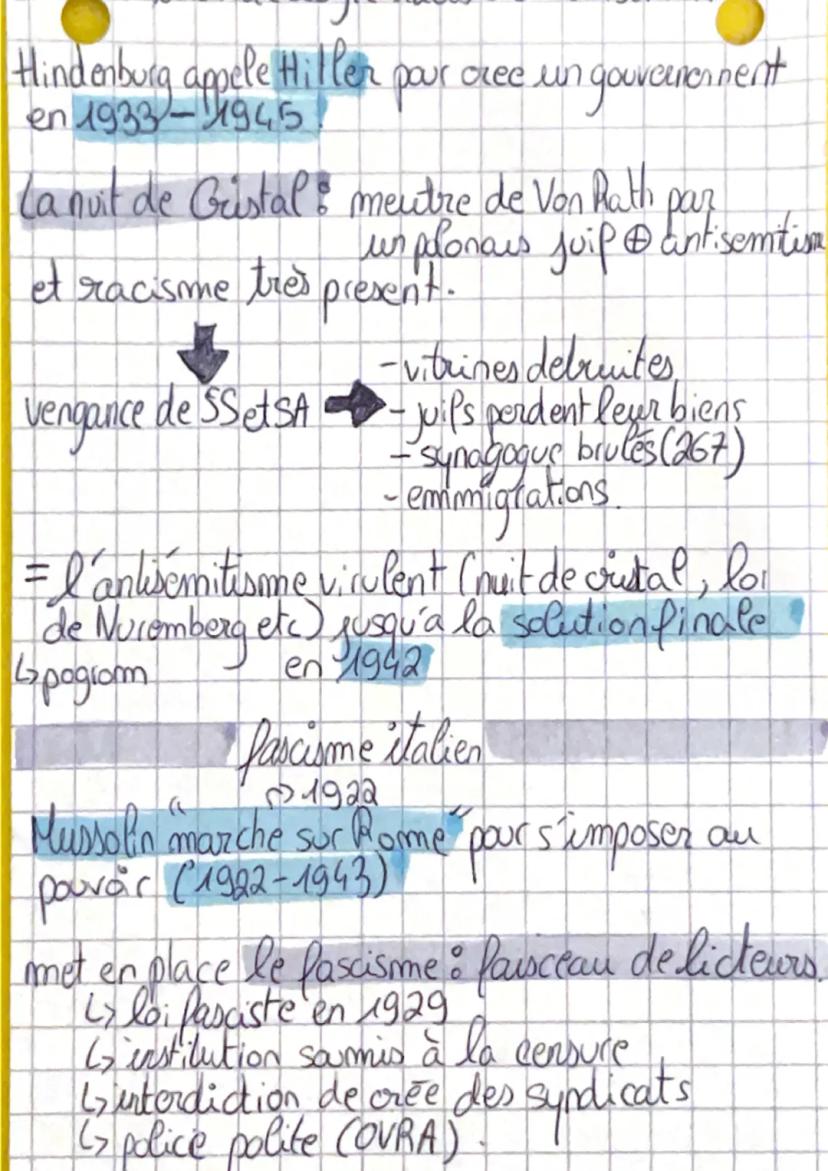 Hindenburg appele Hitler pour cree un gouvernement
en 1933 - 1945.
La nuit de Cristal : meutre de Von Rath par
un polonais juif ⊕ antisemitism
et racisme très present.
vengance de SS et SA ➡ - vitrines detruites
- juifs perdent leur biens
- synagogue brulés (267)
- emmigrations.
= l'antisémitisme virulent (nuit de cristal, loi
de Nuremberg etc) jusqu'a la solution finale
↳ pogrom en 1942
fascisme italien
↪ 1922
Mussolin "marche sur Rome" pour s'imposer au
pouvoir (1922-1943)
met en place le fascisme : faisceau de licteurs.
↳ loi fasciste en 1929
↳ institution soumis à la censure
↳ interdiction de crée des syndicats
↳ police polite (OVRA).